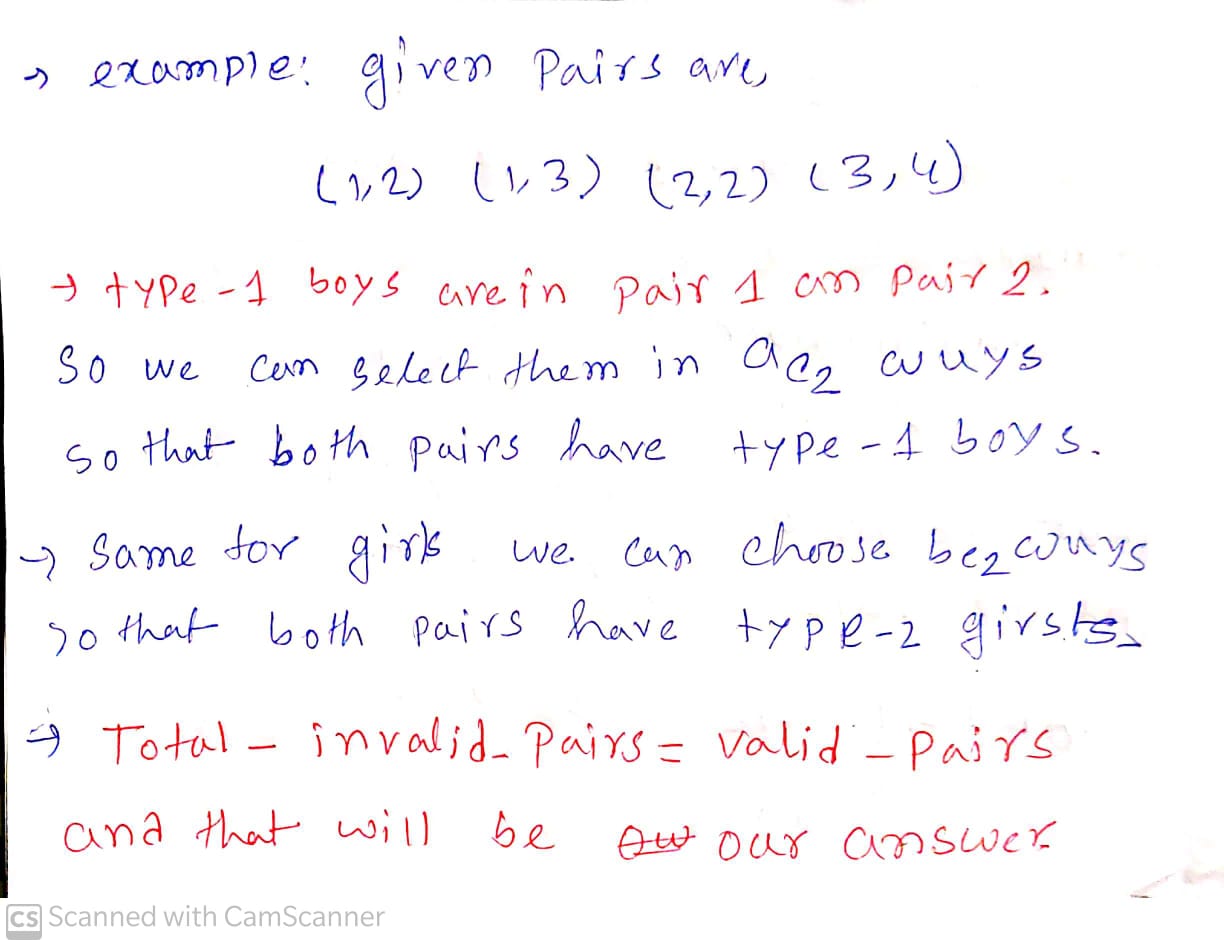 → example: given Pairs are,
(1,2) (1,3) (2,2) (3,4)
→ type-1 boys are in pair 1 an pair 2.
So we can select them in aC2 ways
so that both pairs have type-1 boys.
→ Same for girls we can choose bC2 ways
so that both pairs have type-2
→ Total - invalid_Pairs = valid - Pairs
and that will be our answer
CS Scanned with CamScanner